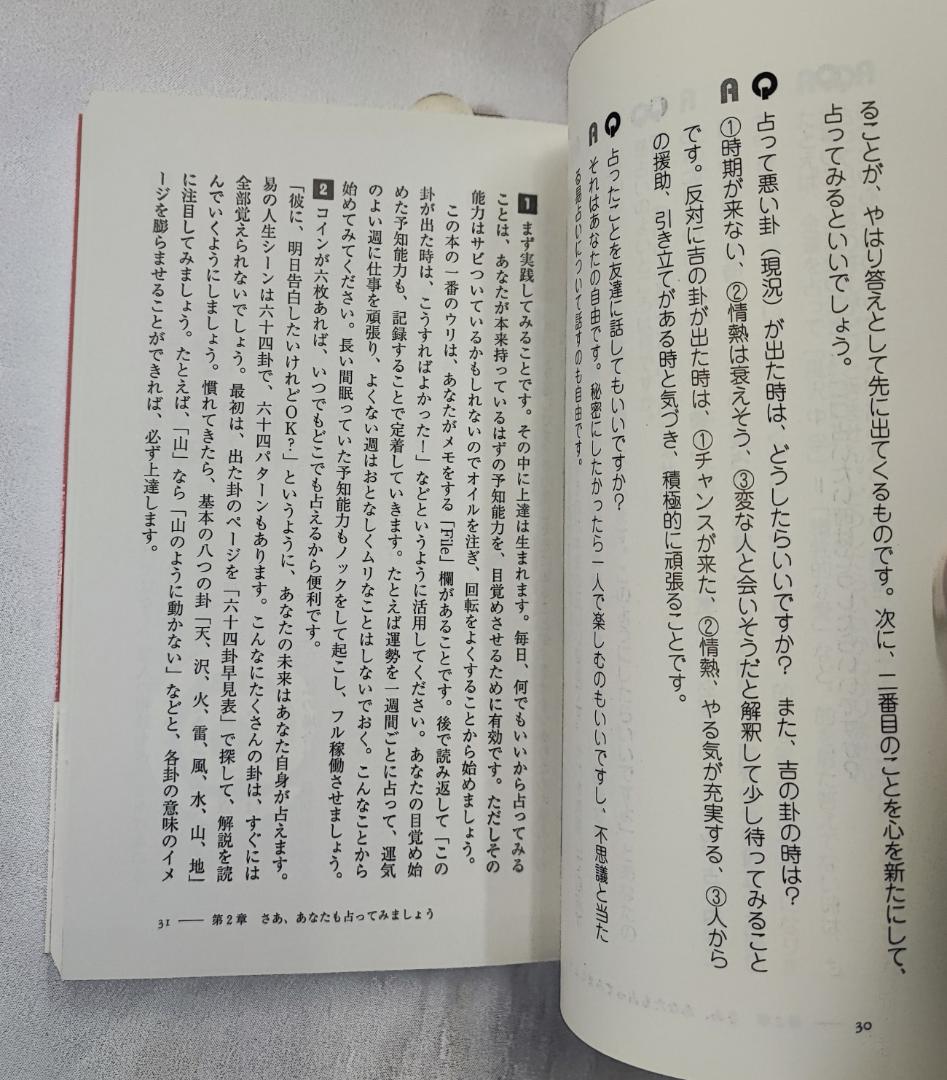 ることが、やはり答えとして先に出てくるものです。次に、二番目のことを心を新たにして、
占ってみるといいでしょう。
Q 占って悪い卦（現況）が出た時は、どうしたらいいですか？　また、吉の卦の時は？
A ①時期が来ない、②情熱は衰えそう、③変な人と会いそうだと解釈して少し待ってみること
です。反対に吉の卦が出た時は、①チャンスが来た、②情熱、やる気が充実する、③人から
の援助、引き立てがある時と気づき、積極的に頑張ることです。
Q 占ったことを友達に話してもいいですか？
A それはあなたの自由です。秘密にしたかったら一人で楽しむのもいいですし、不思議と当た
る易占いについて話すのも自由です。
30
1 まず実践してみることです。その中に上達は生まれます。毎日、何でもいいから占ってみる
ことは、あなたが本来持っているはずの予知能力を、目覚めさせるために有効です。ただしその
能力はサビついているかもしれないのでオイルを注ぎ、回転をよくすることから始めましょう。
この本の一番のウリは、あなたがメモをする「File」欄があることです。後で読み返して「この
卦が出た時は、こうすればよかった！」などというように活用してください。あなたの目覚め始
めた予知能力も、記録することで定着していきます。たとえば運勢を一週間ごとに占って、運気
のよい週に仕事を頑張り、よくない週はおとなしくムリなことはしないでおく。こんなことから
始めてみてください。長い間眠っていた予知能力もノックをして起こし、フル稼働させましょう。
2 コインが六枚あれば、いつでもどこでも占えるから便利です。
「彼に、明日告白したいけれどOK？」というように、あなたの未来はあなた自身が占えます。
易の人生シーンは六十四卦で、六十四パターンもあります。こんなにたくさんの卦は、すぐには
全部覚えられないでしょう。最初は、出た卦のページを「六十四卦早見表」で探して、解説を読
んでいくようにしましょう。慣れてきたら、基本の八つの卦「天、沢、火、雷、風、水、山、地」
に注目してみましょう。たとえば、「山」なら「山のように動かない」などと、各卦の意味のイメ
ージを膨らませることができれば、必ず上達します。
31 ── 第2章　さあ、あなたも占ってみましょう